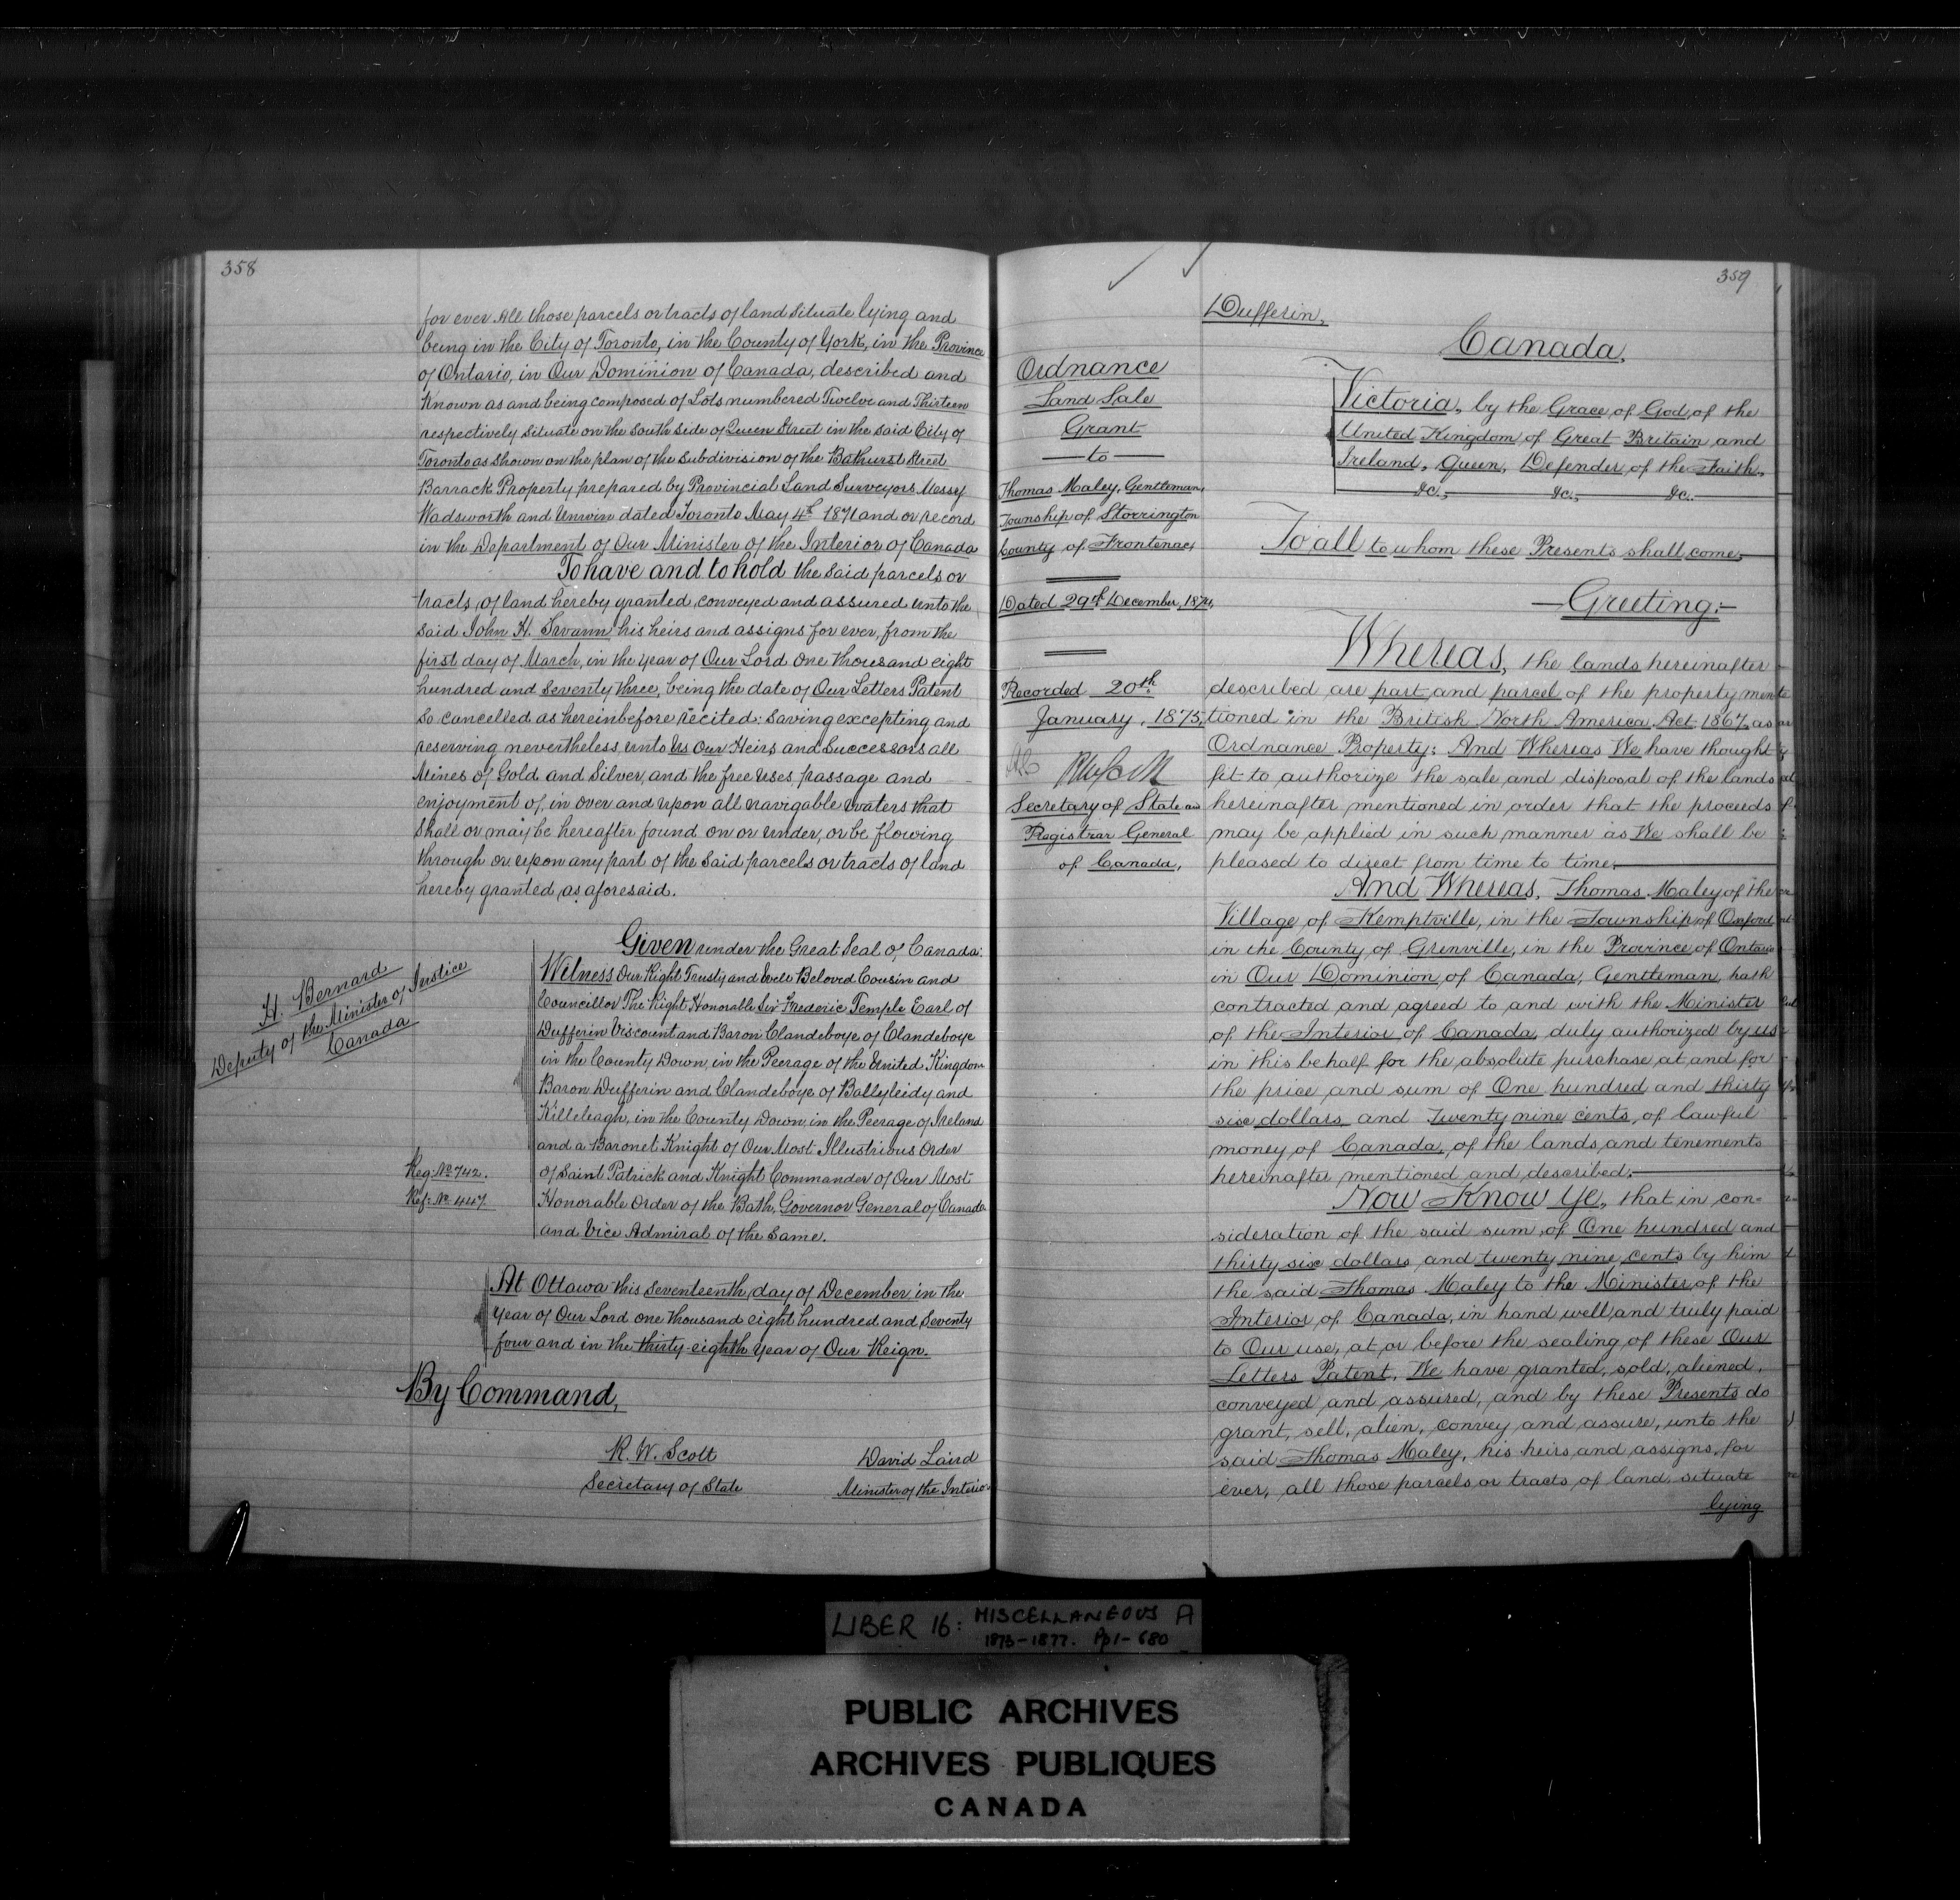 358
for ever All those parcels or tracts of land situate lying and
being in the City of Toronto, in the County of York, in the Province
of Ontario, in Our Dominion of Canada, described and
Known as and being composed of Lots numbered Twelve and Thirteen
respectively situate on the South side of Queen Street in the said City of
Toronto as shown on the plan of the subdivision of the Bathurst Street
Barrack Property prepared by Provincial Land Surveyors Messrs
Wadsworth and Unwin dated Toronto May 4th 1871 and or record
in the Department of Our Minister of the Interior of Canada
To have and to hold the said parcels or
tracts of land hereby granted, conveyed and assured unto the
said John H. his heirs and assigns for ever, from the
first day of March, in the year of Our Lord one thousand eight
hundred and seventy three, being the date of Our Letters Patent
so cancelled as hereinbefore recited: Saving excepting and
reserving nevertheless, unto Us Our Heirs and Successors all
Mines of Gold and Silver, and the free uses, passage and
enjoyment of, in over and upon all navigable waters that
shall or may be hereafter found on or under, or be flowing
through or upon any part of the said parcels or tracts of land
hereby granted as aforesaid.
Given under the Great Seal of Canada:
Witness Our Right Trusty and Well Beloved Cousin and
Councillor The Right Honorable Sir Frederic Temple Earl of
Dufferin Viscount and Baron Clandeboye of Clandeboye
in the County Down, in the Peerage of the United Kingdom
Baron Dufferin and Clandeboye of Ballyleidy and
Killeleagh, in the County Down, in the Peerage of Ireland
and a Baronet Knight of Our Most Illustrious Order
of Saint Patrick and Knight Commander of Our Most
Honorable Order of the Bath, Governor General of Canada
and Vice Admiral of the Same.
H. Bernard
Deputy of the Minister of Justice
Canada
Reg: No 742.
Ref: No 447.
At Ottawa this Seventeenth day of December in the
year of Our Lord one thousand eight hundred and Seventy
four and in the thirty-eighth year of Our Reign.
By Command,
R. W. Scott
Secretary of State
David Laird
Minister of the Interior
359
Dufferin,
Ordnance
Land Sale
Grant
— to —
Thomas Maley, Gentleman,
Township of Storrington
County of Frontenac,
Dated 29th December, 1874,
Recorded 20th
January, 1875,
Secretary of State and
Registrar General
of Canada,
Canada.
Victoria, by the Grace of God, of the
United Kingdom of Great Britain and
Ireland, Queen, Defender of the Faith,
&c., &c., &c.
To all to whom these Presents shall come,
— Greeting:—
Whereas, the lands hereinafter
described are part and parcel of the property men
tioned in the British North America Act 1867, as
Ordnance Property: And Whereas We have thought
fit to authorize the sale and disposal of the lands
hereinafter mentioned in order that the proceeds
may be applied in such manner as We shall be
pleased to direct from time to time.
And Whereas, Thomas Maley of the
Village of Kemptville, in the Township of Oxford
in the County of Grenville, in the Province of Ontario
in Our Dominion of Canada, Gentleman, hath
contracted and agreed to and with the Minister
of the Interior of Canada, duly authorized by us
in this behalf for the absolute purchase at and for
the price and sum of One hundred and thirty
six dollars and Twenty nine cents, of lawful
money of Canada, of the lands and tenements
hereinafter mentioned and described.
Now Know Ye, that in con-
sideration of the said sum of One hundred and
thirty six dollars and twenty nine cents by him
the said Thomas Maley to the Minister of the
Interior of Canada, in hand well and truly paid
to Our use, at or before the sealing of these Our
Letters Patent, We have granted, sold, aliened,
conveyed and assured, and by these Presents do
grant, sell, alien, convey and assure, unto the
said Thomas Maley, his heirs and assigns, for
ever, all those parcels or tracts of land situate
lying
LIBER 16: MISCELLANEOUS A
1873-1877. Pp1-680
PUBLIC ARCHIVES
ARCHIVES PUBLIQUES
CANADA